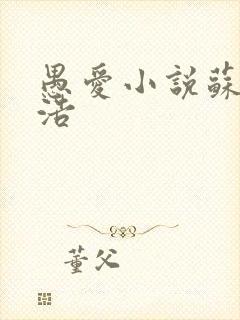 愚愛小說蘇
活
董父